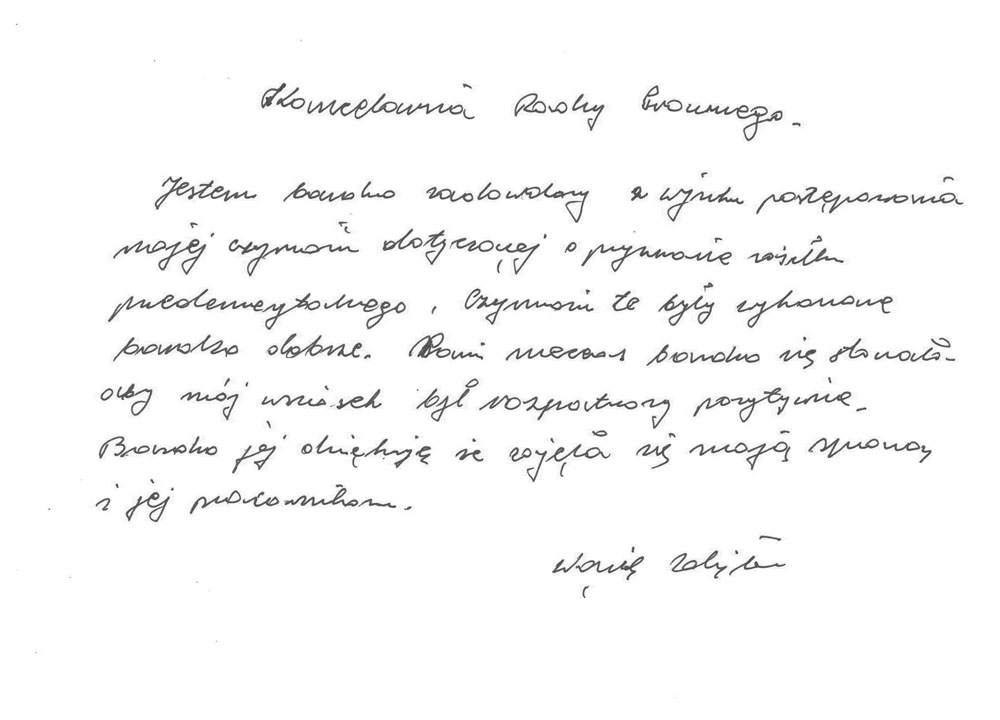 Kancelaria Radcy Prawnego.
Jestem bardzo zadowolony z wyniku postępowania
mojej czynności dotyczącej o przyznanie zasiłku
przedemerytalnego, Czynności te były wykonane
bardzo dobrze. Pani mecenas bardzo się starała
aby mój wniosek był rozpatrzony pozytywnie.
Bardzo jej dziękuję że zajęła się moją sprawą
i jej pracownikom.